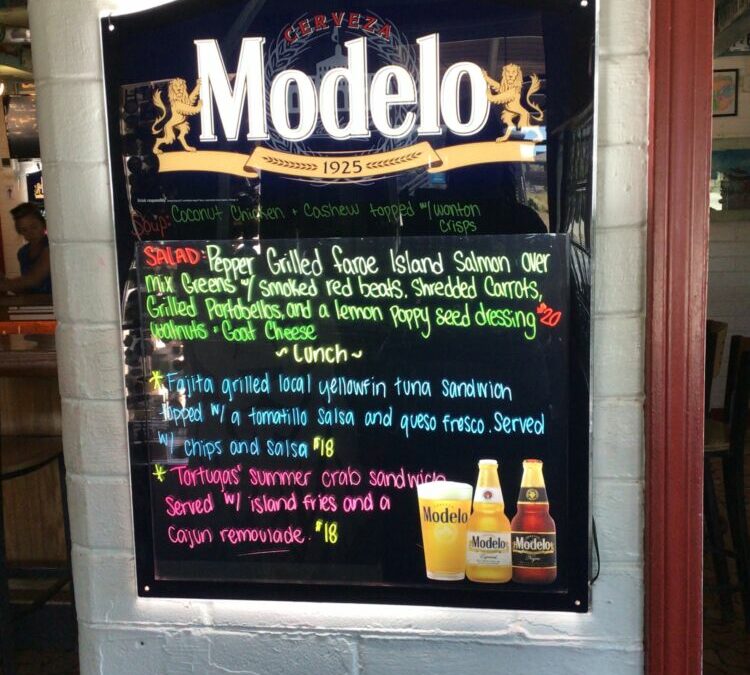 CERVEZA
Modelo
1925
Soup: Coconut Chicken + Cashew topped w/ wonton
Crisps
SALAD: Pepper Grilled faroe Island Salmon over
Mix Greens w/ smoked red beats, Shredded Carrots,
Grilled Portabellos, and a lemon poppy seed dressing $20
walnuts + Goat Cheese
~ Lunch ~
* Fajita grilled local yellowfin tuna Sandwich
topped w/ a tomatillo salsa and queso fresco. Served
w/ chips and salsa $18
* Tortugas' summer crab sandwich
Served w/ island fries and a
Cajun remoulade. $18
Modelo
Modelo
Modelo